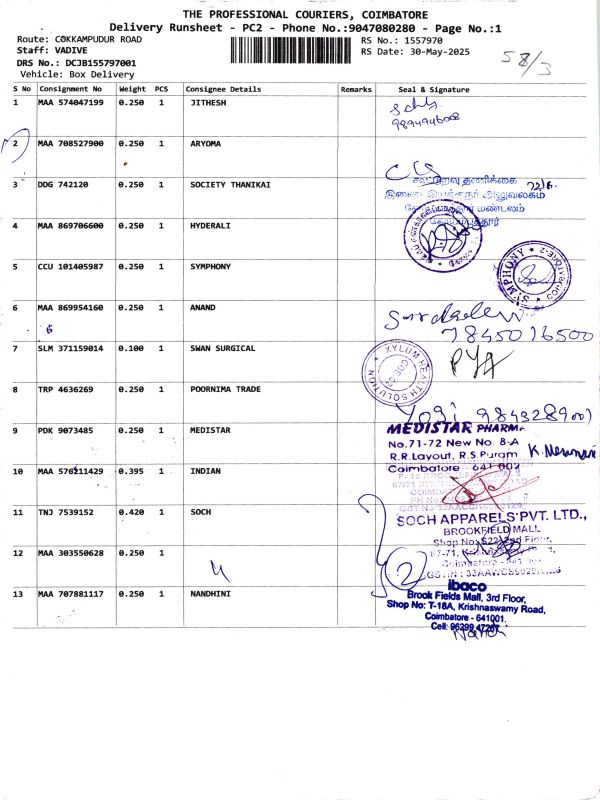 THE PROFESSIONAL COURIERS, COIMBATORE
Delivery Runsheet - PC2 - Phone No.:9047080280 - Page No.:1
Route: COKKAMPUDUR ROAD
Staff: VADIVE
DRS No.: DCJB155797001
Vehicle: Box Delivery
RS No.: 1557970
RS Date: 30-May-2025
58/3
S No Consignment No Weight PCS Consignee Details Remarks Seal & Signature
1 MAA 574047199 0.250 1 JITHESH
9894946008
2 MAA 708527900 0.250 1 ARYOMA
3 DDG 742120 0.250 1 SOCIETY THANIKAI
கூட்டுறவு தணிக்கை
4 MAA 869706600 0.250 1 HYDERALI
5 CCU 101405987 0.250 1 SYMPHONY
SYMPHONY
COIMBATORE-2
6 MAA 869954160 0.250 1 ANAND
7845016500
7 SLM 371159014 0.100 1 SWAN SURGICAL
XYLUM HEALTH SOLUTION
8 TRP 4636269 0.250 1 POORNIMA TRADE
Yogi 9843289001
9 PDK 9073485 0.250 1 MEDISTAR
MEDISTAR PHARMA
No.71-72 New No. 8-A
R.R.Layout, R.S.Puram
Coimbatore 641 002
10 MAA 576211429 0.395 1 INDIAN
11 TNJ 7539152 0.420 1 SOCH
SOCH APPARELS PVT. LTD.,
BROOKFIELD MALL
Shop No: S22, 2nd Floor,
12 MAA 303550628 0.250 1
2
13 MAA 707881117 0.250 1 NANDHINI
ibaco
Brook Fields Mall, 3rd Floor,
Shop No: T-18A, Krishnaswamy Road,
Coimbatore - 641001.
Nandi